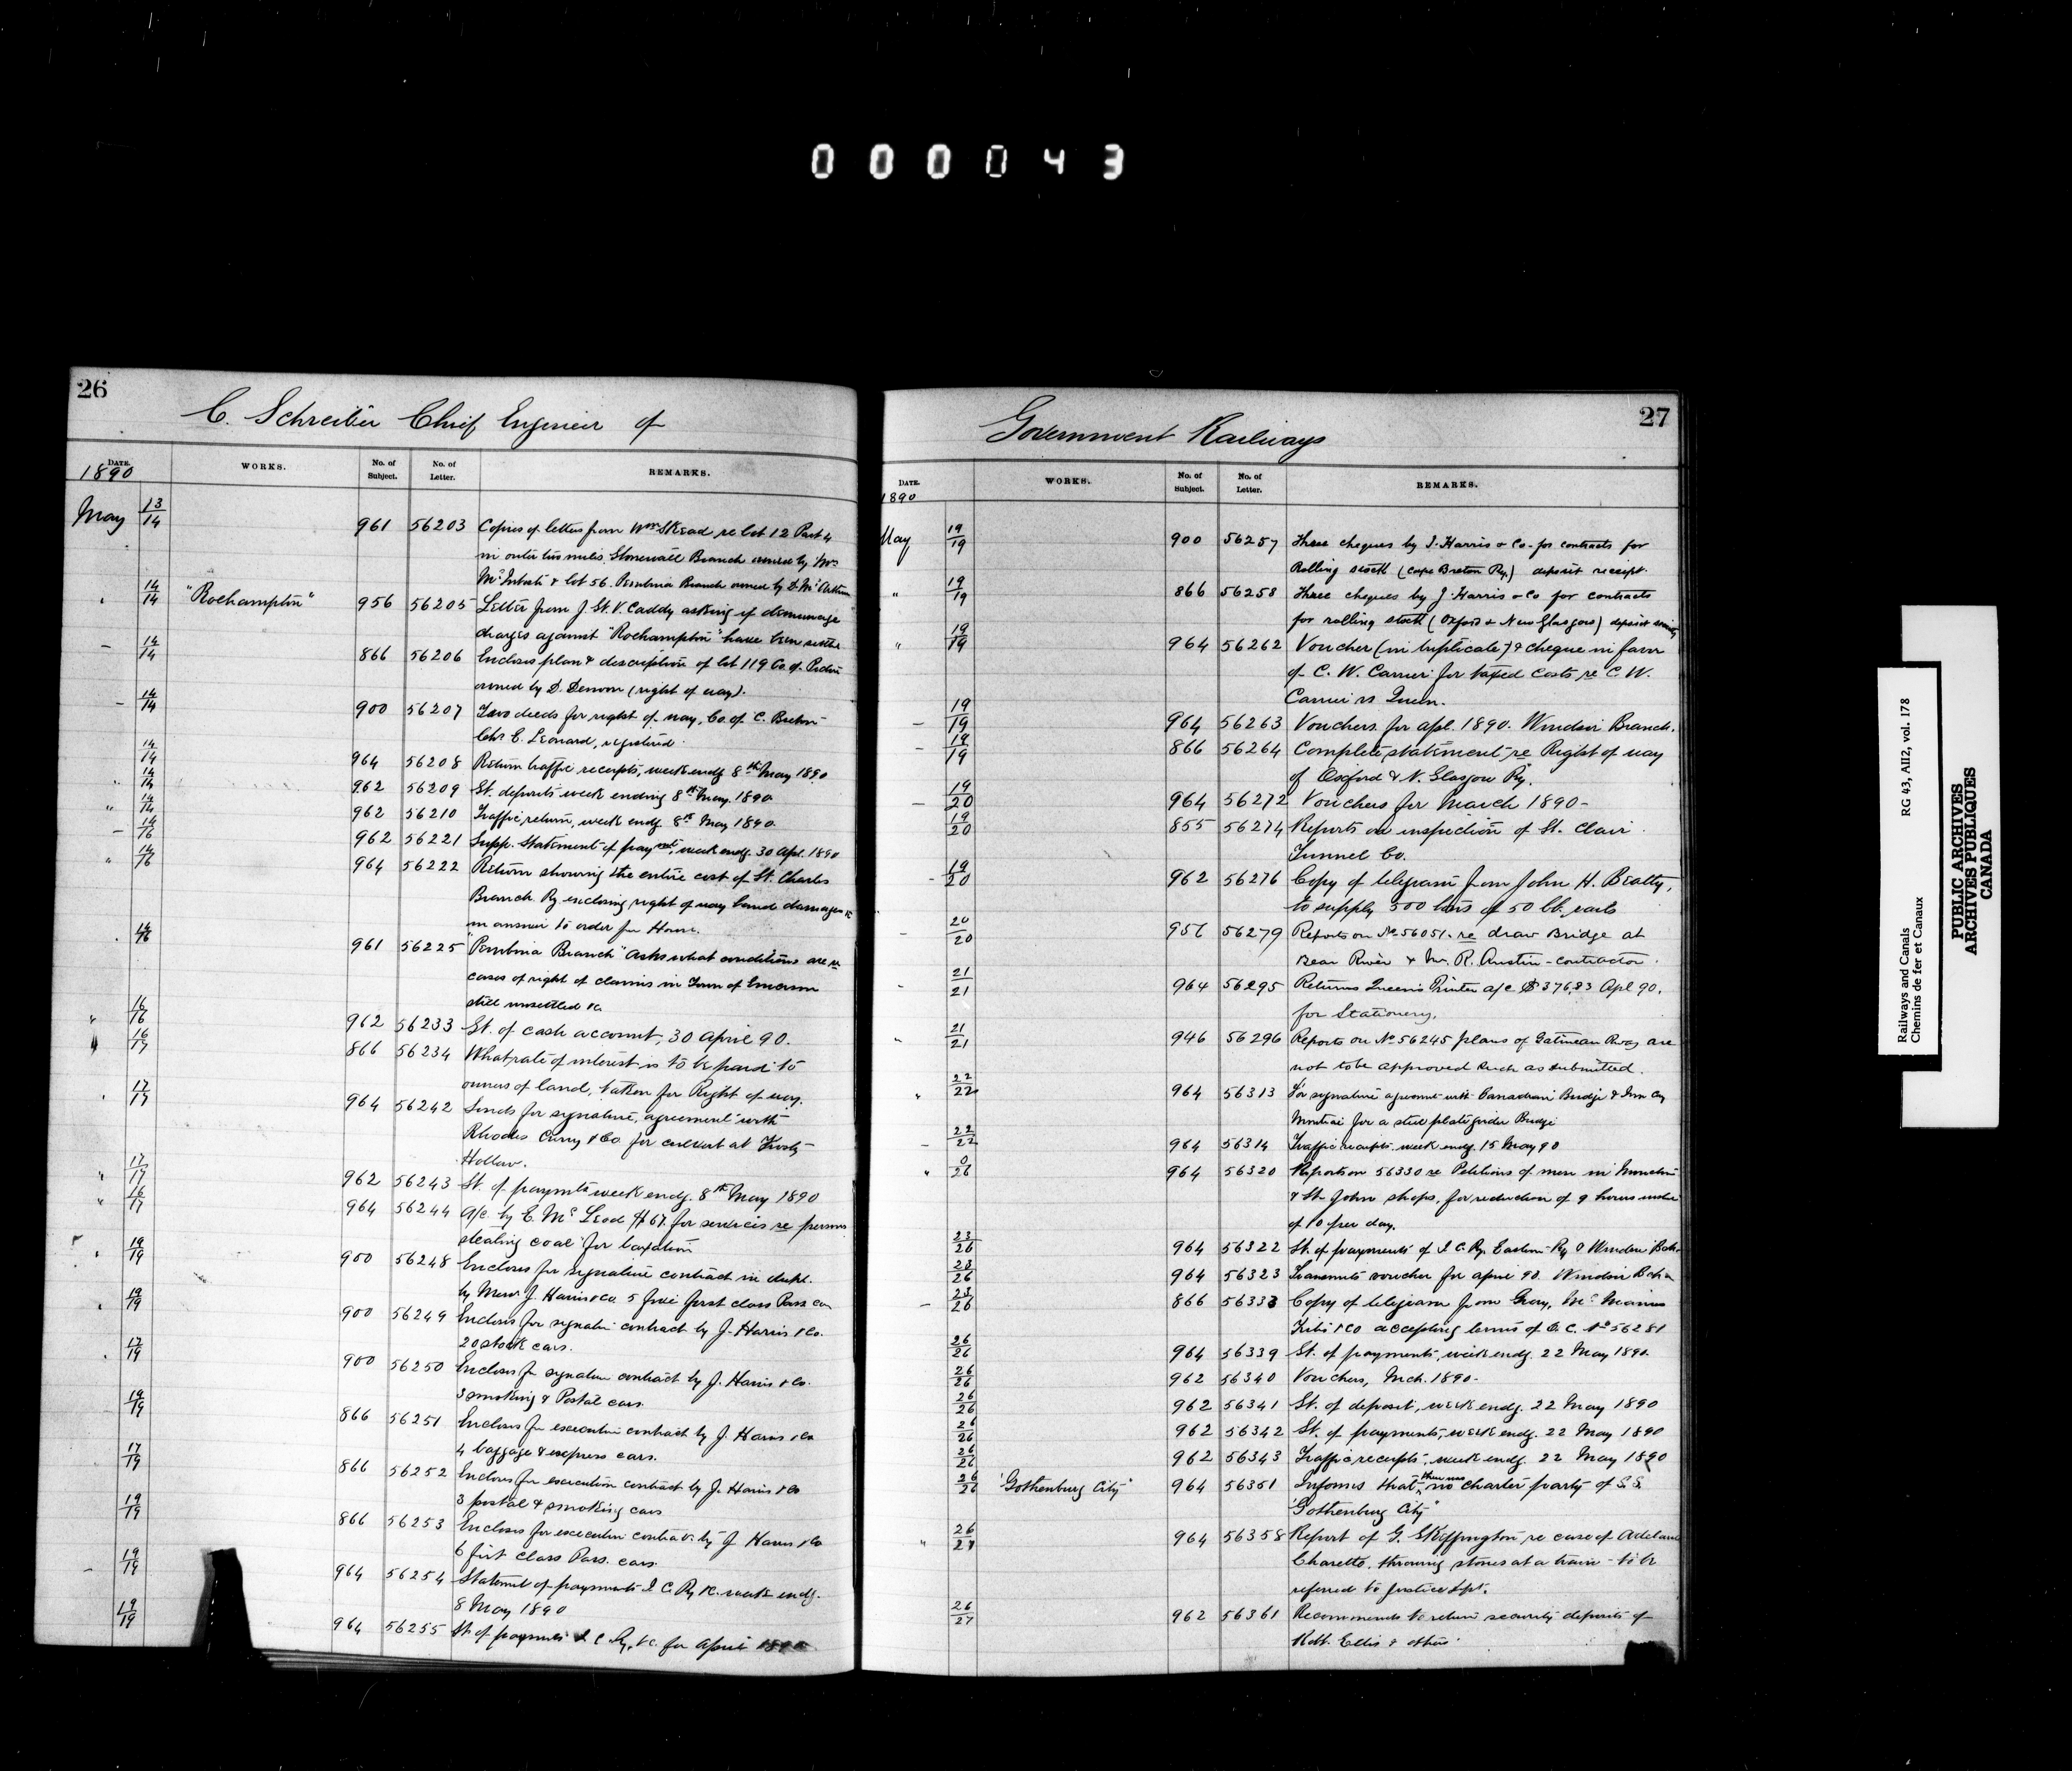 000043
26
C. Schreiber Chief Engineer of
DATE. WORKS. No. of Subject. No. of Letter. REMARKS.
1890
May 13/14 961 56203 Copies of letters from Wm Skead re lot 12 Part 4
in outer two miles Stonewall Branch owned by Mrs
McIntosh & lot 56 Pembina Branch owned by D. McArthur
" 14/14 "Rochampton" 956 56205 Letter from J. St. V. Caddy asking if demurrage
charges against "Rochampton" have been settled
14/14 866 56206 Encloses plan & description of lot 119 Co. of Pictou
owned by D. Denoon (right of way).
14/14 900 56207 Two deeds for right of way, Co. of C. Breton
Chs E. Leonard, registered
14/14 964 56208 Return traffic receipts, week endg 8th May 1890
14/14 962 56209 St. deposits week ending 8th May 1890
" 14/14 962 56210 Traffic return, week endg. 8th May 1890.
14/16 962 56221 Supp. Statement of paymt, week endg. 30 Apl. 1890
" 14/16 964 56222 Return showing the entire cost of St. Charles
Branch Ry enclosing right of way land damages &c
in answer to order for House.
16/16 961 56225 "Pembina Branch" Asks what conditions are in
cases of right of claims in Town of Emerson
still unsettled &c
" 16/16 962 56233 St. of cash account, 30 April 90.
16/17 866 56234 What rate of interest is to be paid to
owners of land, taken for Right of way.
17/17 964 56242 Sends for signature, agreement with
Rhodes Curry & Co for culvert at
Hollow.
" 17/17 962 56243 St. of paymts week endg. 8th May 1890
" 16/17 964 56244 A/c by E. McLeod $67. for services re persons
stealing coal for taxation
19/19 900 56248 Encloses for signature contract in dupl.
by Messrs J. Harris & Co. 5 first class Pass. cars
19/19 900 56249 Encloses for signature contract by J. Harris & Co.
20 stock cars.
17/19 900 56250 Encloses for signature contract by J. Harris & Co.
3 smoking & Postal cars.
19/19 866 56251 Encloses for execution contract by J. Harris & Co
4 baggage & express cars.
17/19 866 56252 Encloses for execution contract by J. Harris & Co
3 postal & smoking cars
19/19 866 56253 Encloses for execution contract by J Harris & Co
6 first class Pass. cars.
19/19 964 56254 Statement of payments I. C. Ry &c. week endg.
8 May 1890
19/19 964 56255 St. of payments I. C. Ry, &c. for April 1890
27
Government Railways
DATE. WORKS. No. of Subject. No. of Letter. REMARKS.
1890
May 19/19 900 56257 Three cheques by J. Harris & Co. for contracts for
Rolling stock (Cape Breton Ry.) deposit receipt.
" 19/19 866 56258 Three cheques by J. Harris & Co for contracts
for rolling stock (Oxford & New Glasgow) deposit
" 19/19 964 56262 Voucher (in triplicate) & cheque in favr
of C. W. Carrier for taxed costs re C. W.
Carrier vs Queen.
19/19 964 56263 Vouchers for apl. 1890. Windsor Branch.
19/19 866 56264 Complete statement re Right of way
of Oxford & N. Glasgow Ry.
19/20 964 56272 Vouchers for March 1890-
19/20 855 56274 Reports on inspection of St. Clair
Tunnel Co.
19/20 962 56276 Copy of telegram from John H. Beatty,
to supply 500 tons of 50 lb. rails
20/20 956 56279 Reports on No 56051. re draw Bridge at
Bear River & Mr. R. Austin - contractor.
21/21 964 56295 Returns Queen's Printer a/c $376.83 Apl 90.
for Stationery.
21/21 946 56296 Reports on No 56245 plans of Gatineau Rway are
not to be approved such as submitted.
22/22 964 56313 For signature agreemnt with Canadian Bridge & Iron Coy
Montreal for a steel plate girder Bridge
22/22 964 56314 Traffic receipts. week endg. 15 May 90
" 0/26 964 56320 Report on 56330 re Petitions of men in Moncton
& St. John shops, for reduction of 9 hours instead
of 10 per day.
23/26 964 56322 St. of payments of I. C. Ry. Eastern Ry & Windsor Bch.
23/26 964 56323 Transmits voucher for april 90. Windsor Bch
23/26 866 56333 Copy of telegram from Gray, McManus
& Co accepting terms of O. C. No 56281
26/26 964 56339 St. of payments, week endg. 22 May 1890.
26/26 962 56340 Vouchers, Mch. 1890-
26/26 962 56341 St. of deposit, week endg. 22 May 1890
26/26 962 56342 St. of payments, week endg. 22 May 1890
26/26 962 56343 Traffic receipts, week endg. 22 May 1890
26/26 "Gothenburg City" 964 56351 Informs that there was no charter party of S.S.
"Gothenburg City"
" 26/27 964 56358 Report of G. Skeffington re case of Adelard
Charette, throwing stones at a train - to be
referred to Justice Dpt.
26/27 962 56361 Recommends to return security deposits of
Robt. Ellis & others
Railways and Canals
Chemins de fer et Canaux
RG 43, AII2, vol. 178
PUBLIC ARCHIVES
ARCHIVES PUBLIQUES
CANADA